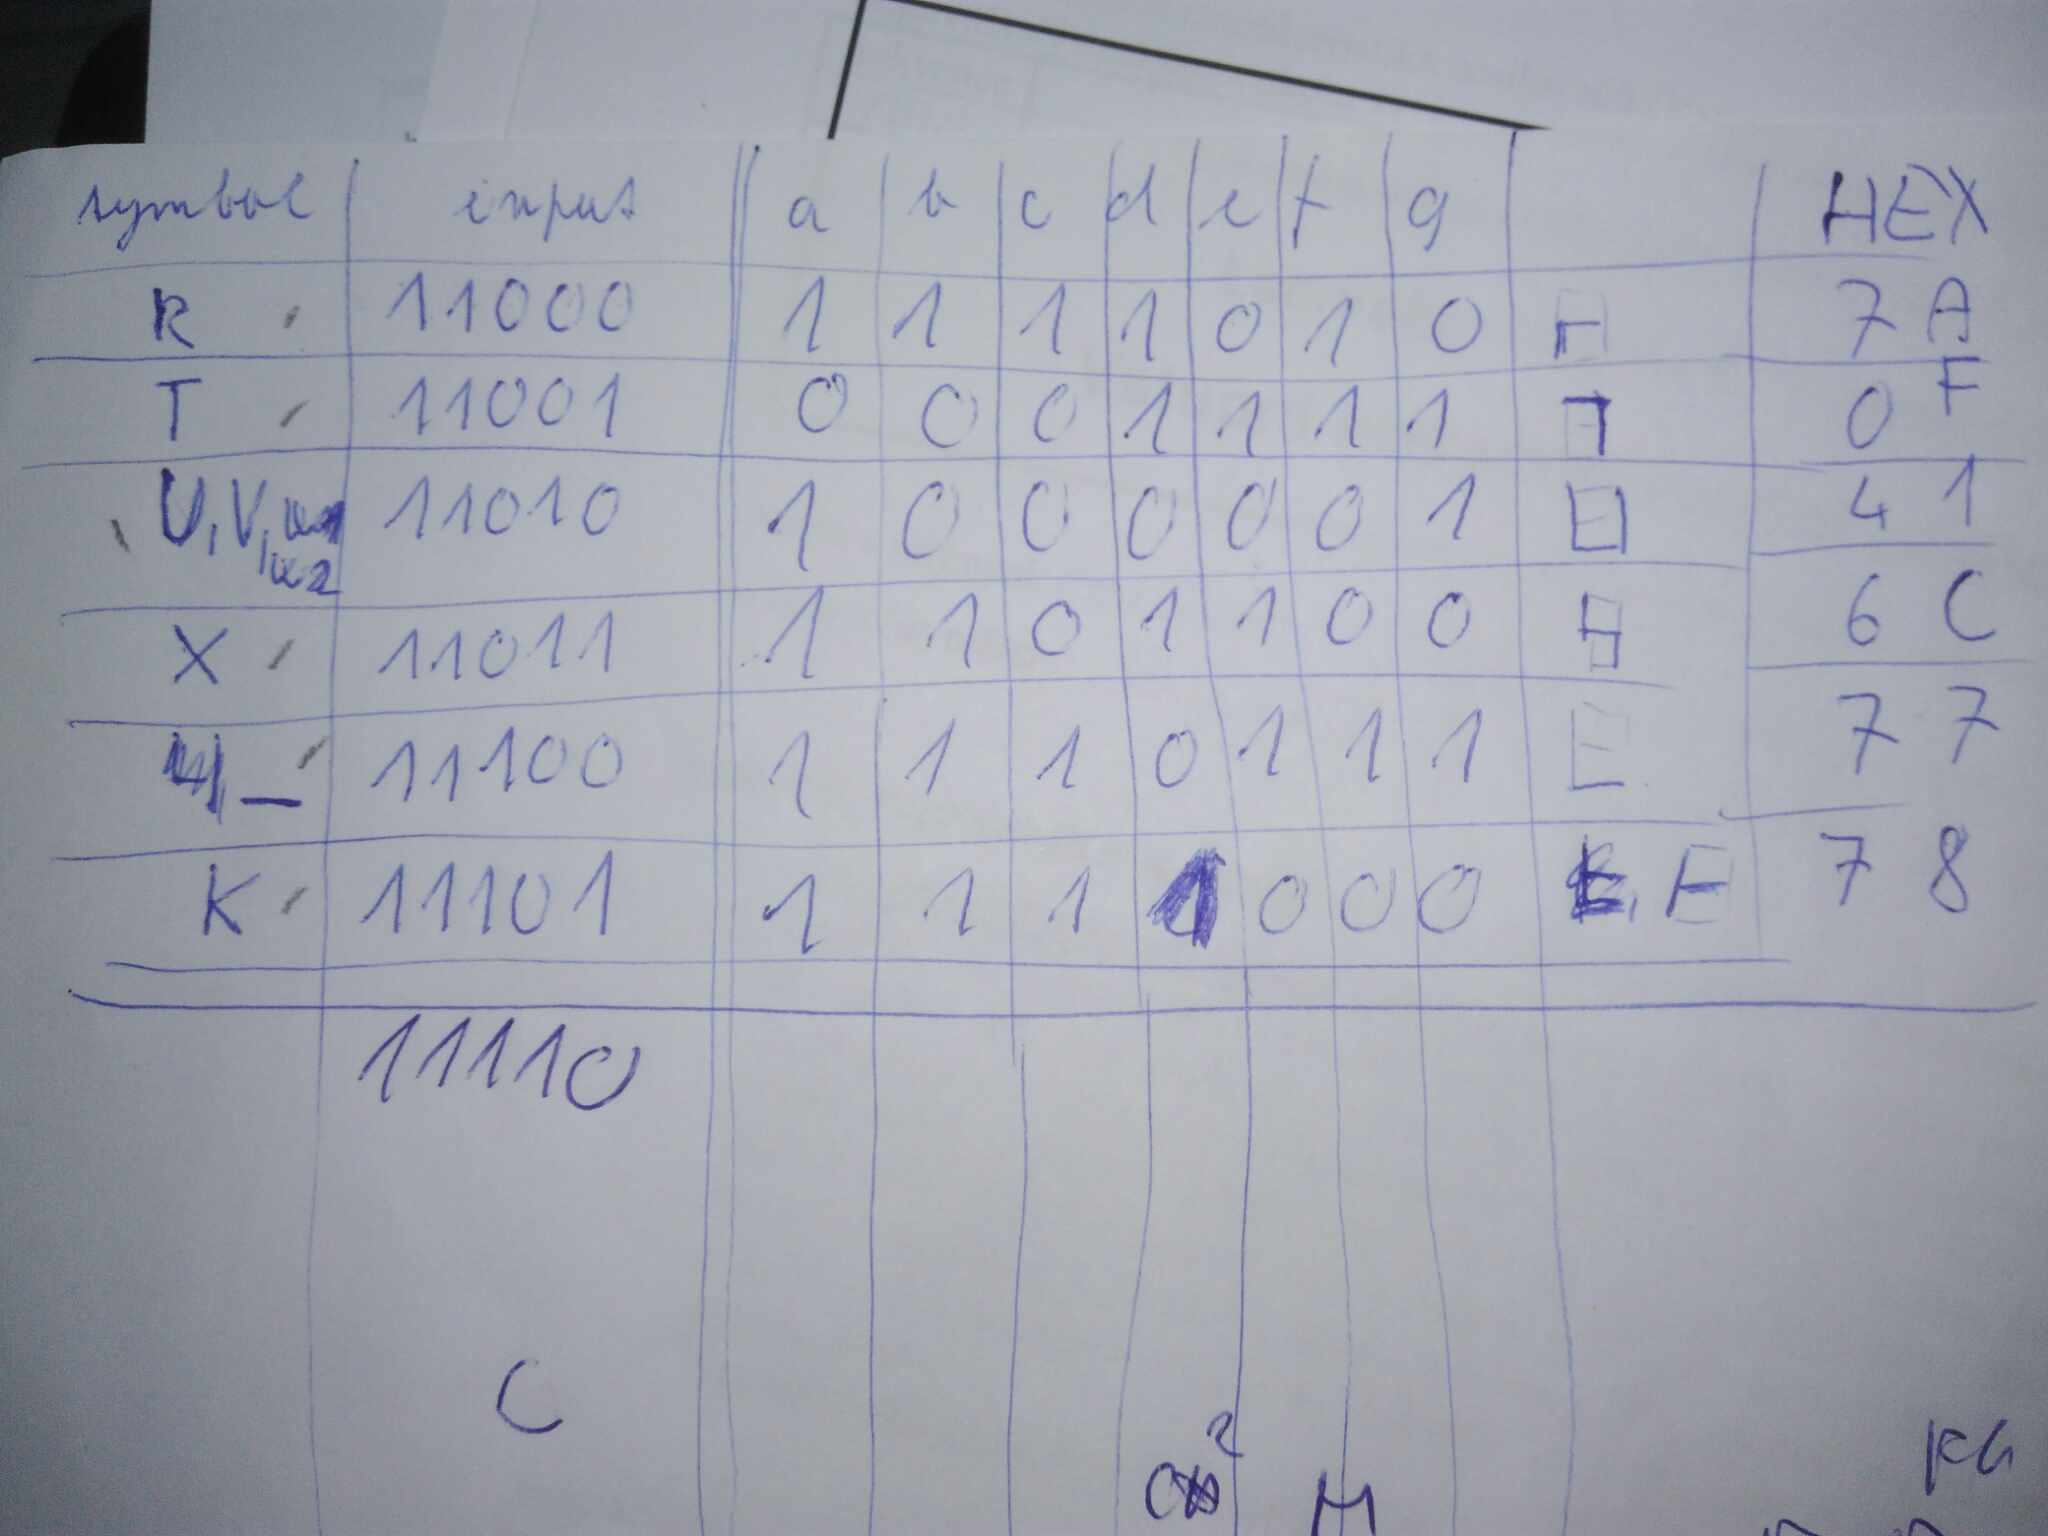 symbol input a b c d e f g HEX
R 11000 1 1 1 1 0 1 0 7 A
T 11001 0 0 0 1 1 1 1 0 F
U, V, 11010 1 0 0 0 0 0 1 4 1
X 11011 1 1 0 1 1 0 0 6 C
_ 11100 1 1 1 0 1 1 1 7 7
K 11101 1 1 1 1 0 0 0 7 8
11110
C